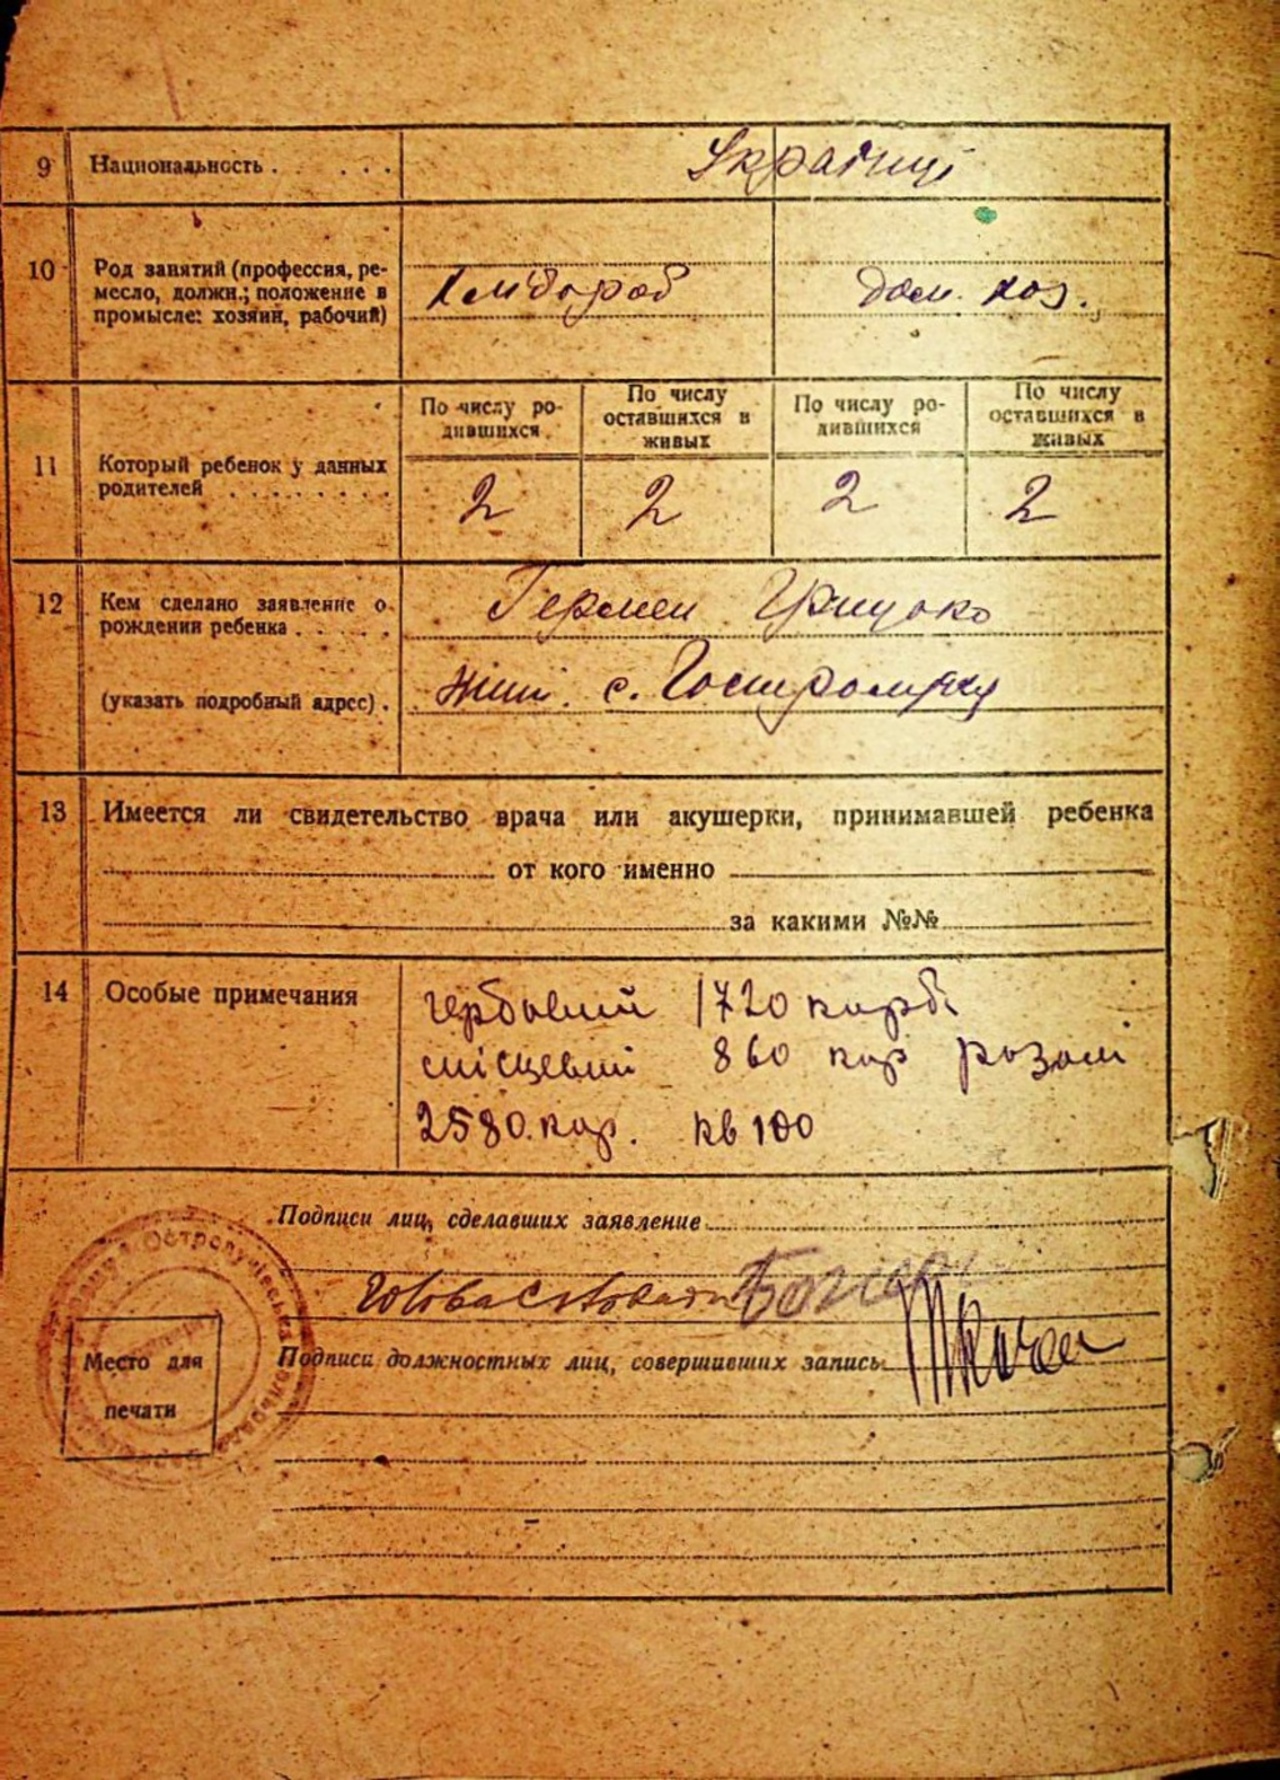 9 Национальность . . . . Українці
10 Род занятий (профессия, ре-
месло, должн.; положение в
промысле: хозяин, рабочий)
Хлібороб дом. хоз.
По числу ро-
дившихся
По числу
оставшихся в
живых
По числу ро-
дившихся
По числу
оставшихся в
живых
11 Который ребенок у данных
родителей . . . . . . . .
2 2 2 2
12 Кем сделано заявление о
рождении ребенка . . . . .
Грицько
(указать подробный адрес) .
с.
13 Имеется ли свидетельство врача или акушерки, принимавшей ребенка
от кого именно
за какими №№
14 Особые примечания
гербовий 1720 карб.
місцевий 860 кар разом
2580. кар. кв 100
Подписи лиц, сделавших заявление
Подписи должностных лиц, совершивших запись
Место для
печати